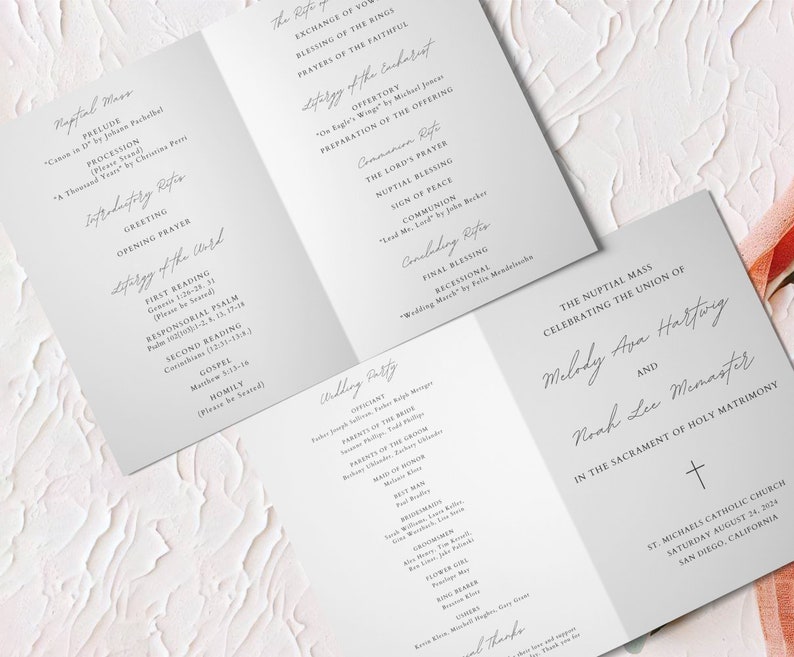 Nuptial Mass
PRELUDE
"Canon in D" by Johann Pachelbel
PROCESSION
(Please Srand)
"A Thousand Years" by Christina Perri
Introductory Rites
GREETING
OPENING PRAYER
Liturgy of the Word
FIRST READING
Genesis 1:26-28, 31
(Please be Seated)
RESPONSORIAL PSALM
Psalm 102(103):1-2, 8, 13, 17-18
SECOND READING
Corinthians (12:31–13:8,)
GOSPEL
Matthew 5:13-16
HOMILY
(Please be Seated)
The Rite of
EXCHANGE OF VOW
BLESSING OF THE RINGS
PRAYERS OF THE FAITHFUL
Liturgy of the Eucharist
OFFERTORY
"On Eagle's Wings" by Michael Joncas
PREPARATION OF THE OFFERING
Communion Rite
THE LORD'S PRAYER
NUPTIAL BLESSING
SIGN OF PEACE
COMMUNION
"Lead Me, Lord" by John Becker
Concluding Rites
FINAL BLESSING
RECESSIONAL
"Wedding March" by Felix Mendelssohn
Wedding Party
OFFICIANT
Father Joseph Sullivan, Father Ralph Metzger
PARENTS OF THE BRIDE
Susanne Phillips, Todd Phillips
PARENTS OF THE GROOM
Bethany Uhlander, Zachary Uhlander
MAID OF HONOR
Melanie Klotz
BEST MAN
Paul Bradley
BRIDESMAIDS
Sarah Williams, Laura Keller,
Gina Wurzbach, Lisa Stein
GROOMSMEN
Alex Henry, Tim Kersell,
Ben Liner, Jake Palinski
FLOWER GIRL
Penelope May
RING BEARER
Braxton Klotz
USHERS
Kevin Klein, Mitchell Hughes, Gary Grant
Thanks
their love and support
day. Thank you for
THE NUPTIAL MASS
CELEBRATING THE UNION OF
Melody Ava Hartwig
AND
Noah Lee Mcmaster
IN THE SACRAMENT OF HOLY MATRIMONY
ST. MICHAELS CATHOLIC CHURCH
SATURDAY AUGUST 24, 2024
SAN DIEGO, CALIFORNIA